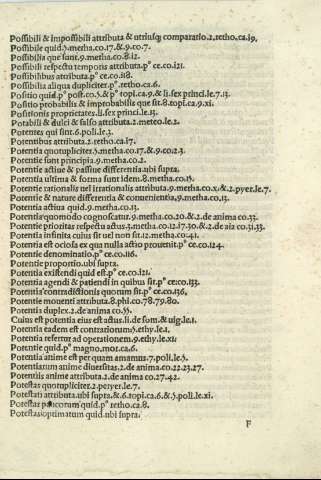 Possibili & impossibili attributa & utriusq; comparatio.2.retho.ca.19.
Possibile quid.5.metha.co.17.& 9.co.7.
Possibilia que sunt.9.metha.co.8.12.
Possibili respectu temporis attributa.pº ce.co.121.
Possibilibus attributa.pº ce.co.118.
Possibilia aliqua dupliciter.pº retho.ca.6.
Positio quid.pº post.co.5.& pº topi.ca.9.& li.sex princi.le.7.13.
Positio probabilis & improbabilis que sit.8.topi.ca.9.xi.
Positionis proprietates.li.sex princi.le.13.
Potabili & dulci & salso attributa.2.meteo.le.2.
Potentes qui sint.6.poli.le.3.
Potentibus attributa.2.retho.ca.17.
Potentia quotupliciter.5.metha.co.17.& 9.co.2.3.
Potentie sunt principia.9.metha.co.2.
Potentie actiue & passiue differentia.ubi supra.
Potentia ultima & forma sunt idem.8.metha.co.15.
Potentie rationalis uel irrationalis attributa.9.metha.co.x.& 2.pyer.le.7.
Potentie & nature differentia & conuenientia.9.metha.co.13.
Potentia actiua quid.9.metha.co.13.
Potentia quomodo cognoscatur.9.metha.co.20.& 2.de anima co.33.
Potentie prioritas respectu actus.3.metha.co.12.17.30.& 2.de aia co.31.33.
Potentia infinita cuius sit uel non sit.12.metha co.41.
Potentia est ociosa ex qua nulla actio prouenit.pº ce.co.124.
Potentie denominatio.pº ce.co.116.
Potentie proportio.ubi supra.
Potentia existendi quid est.pº ce.co.121.
Potentia agendi & patiendi in quibus sit.pº ce.co.133.
Potentia contradictionis quorum sit.pº ce.co.136.
Potentie mouenti attributa.8.phi.co.78.79.80.
Potentia duplex.2.de anima co.55.
Cuius est potentia eius est actus.li.de som.& uig.le.1.
Potentia eadem est contrariorum.5.ethy.le.1.
Potentia refertur ad operationem.9.ethy.le.xi.
Potentie quid.pº magno.mor.ca.6.
Potentia anime est per quam amamus.7.poli.le.5.
Potentiarum anime diuersitas.2.de anima co.22.23.27.
Potentiis anime attributa.2.de anima co.27.42.
Potestas quotupliciter.2.peryer.le.7.
Potestati attributa.ubi supra.& 6.topi.ca.6.& 5.poli.le.xi.
Potestas paucorum quid.pº retho.ca.8.
Potestas optimatum quid.ubi supra.
F